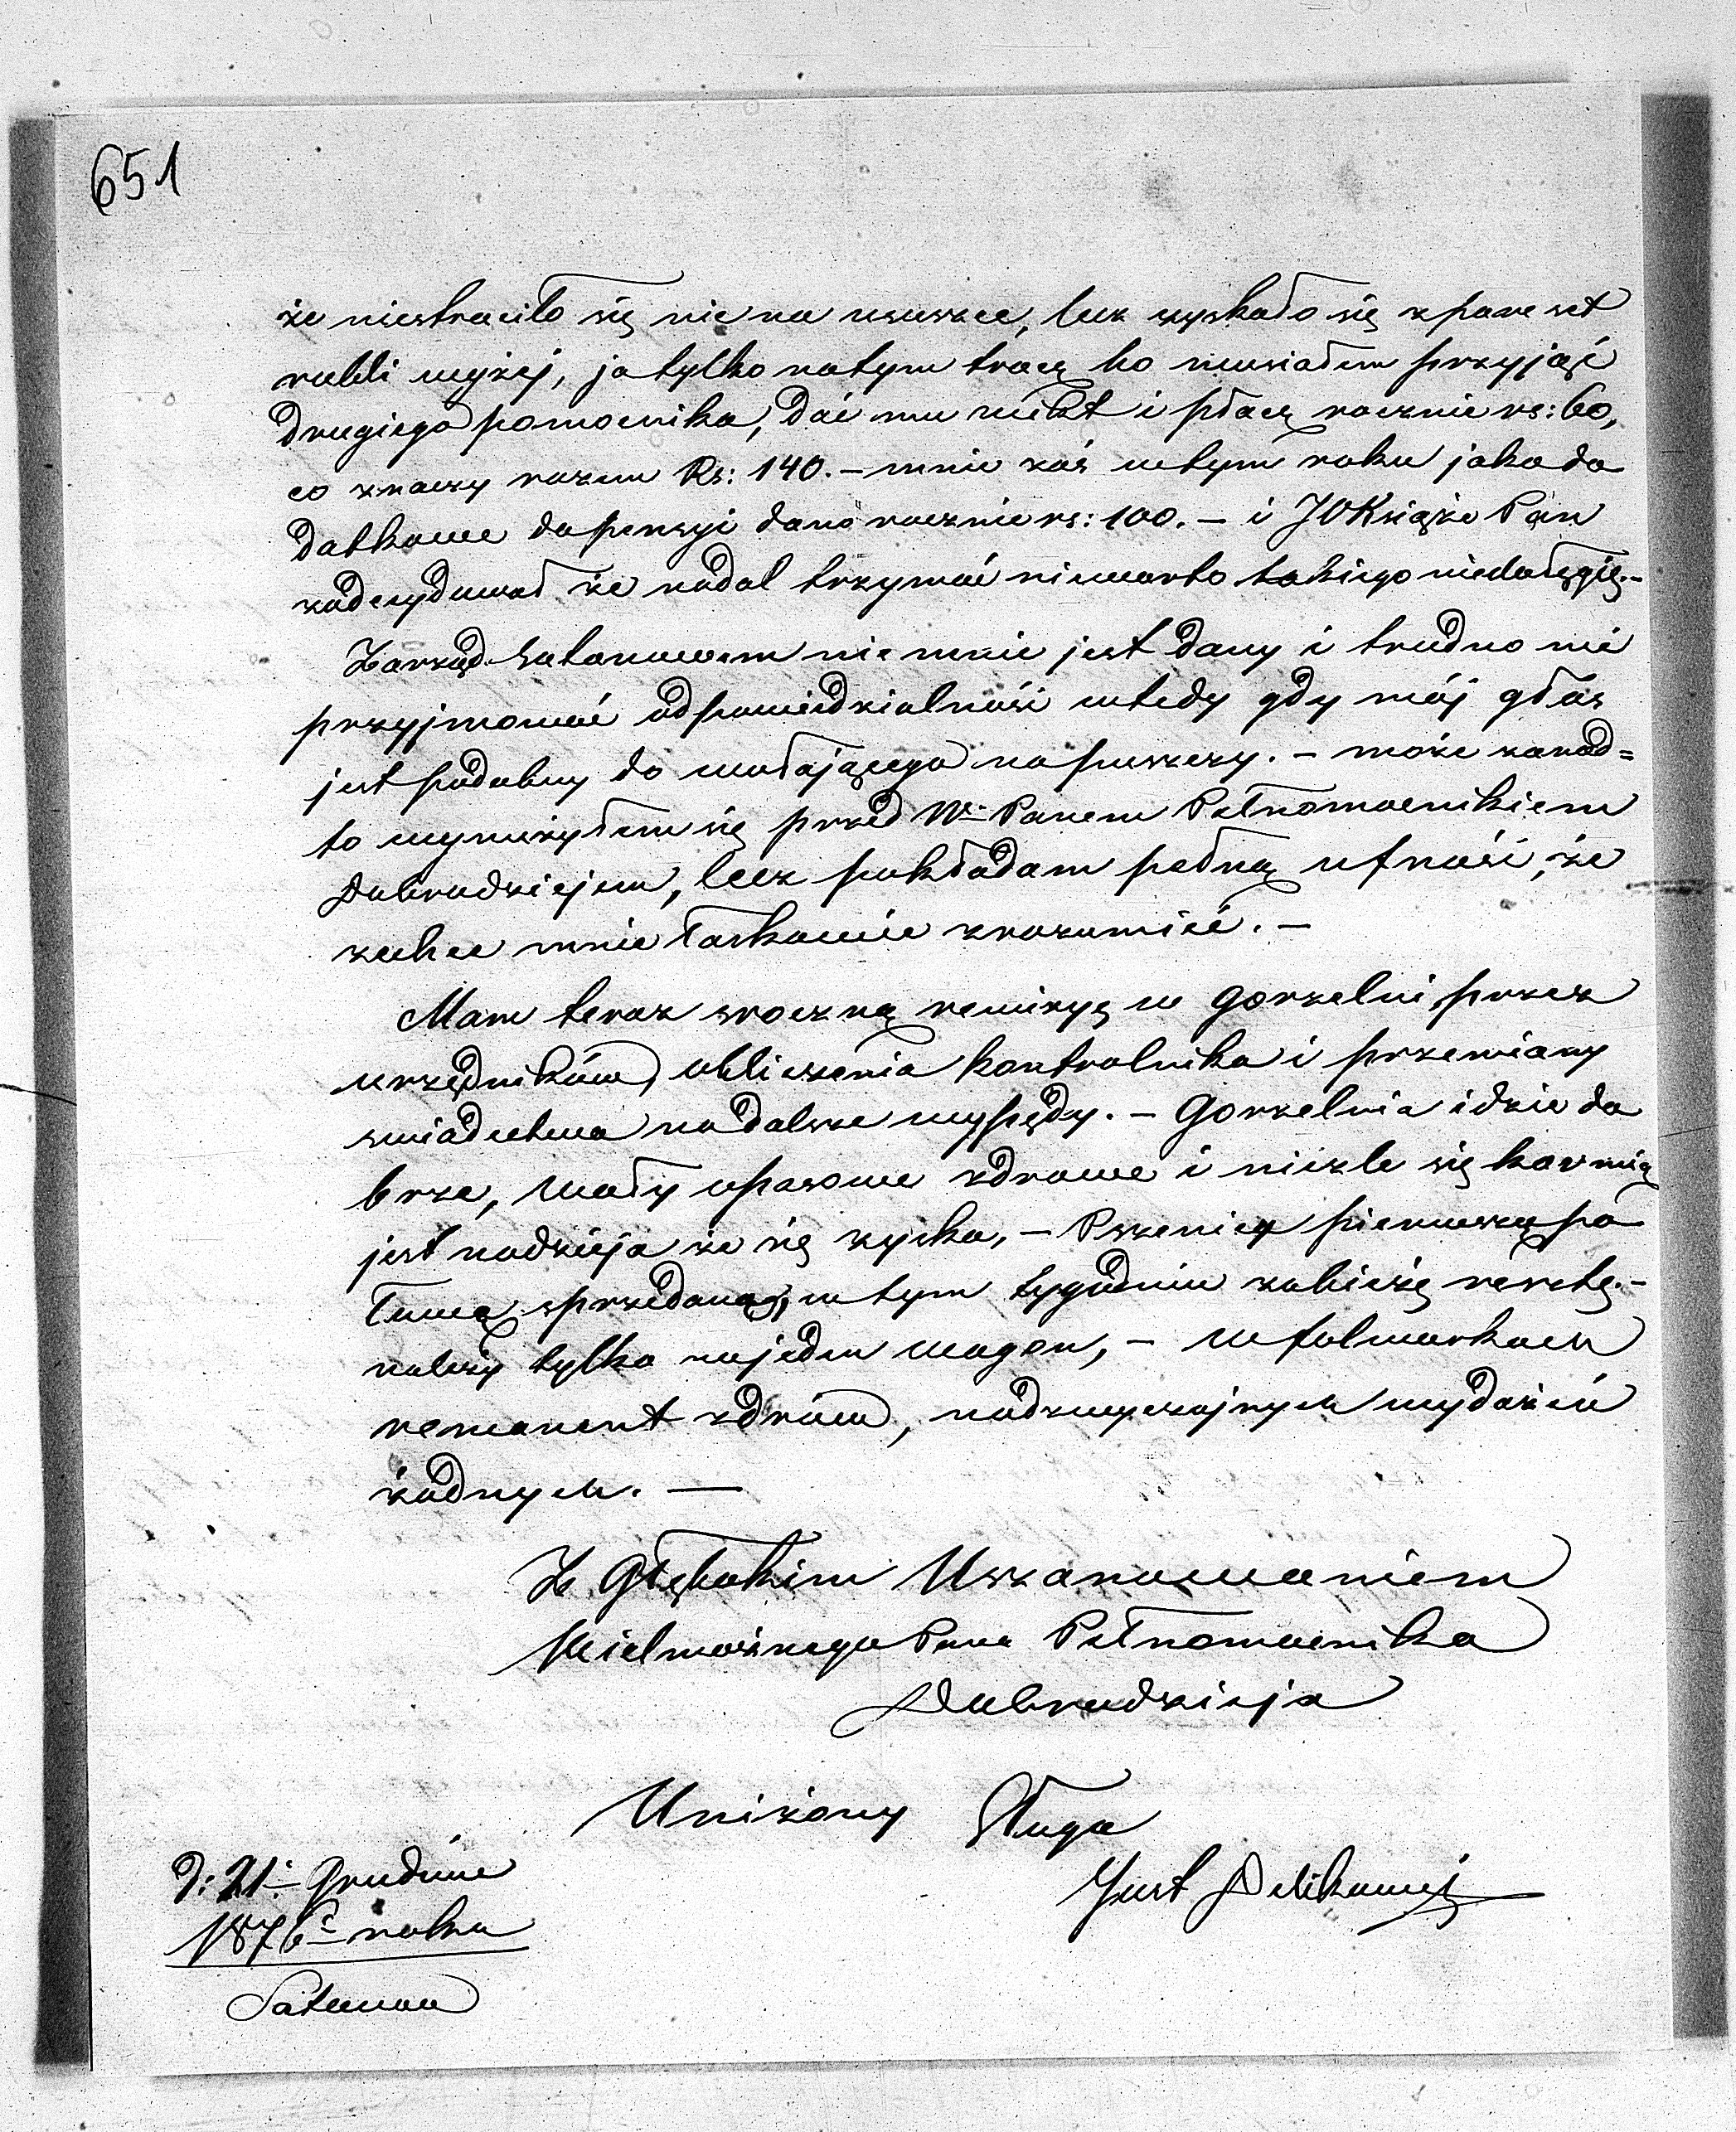 651
że niestraciło się nic na ususzce, lecz zyskało się z pare set
rubli wyżej, ja tylko natym tracę bo musiałem przyjąść
drugiego pomocnika, dać mu wikt i płacę rocznie rs: 60,
co znaczy razem Rs: 140. – mnie zaś wtym roku jako do
datkowe do pensyi dano rocznie rs: 100. – i JO Książe Pan
zadecydował że nadal trzymać niewarto takiego niedołęgię. –
Zarząd Satanowem nie mnie jest dany i trudno mi
przyjmować odpowiedzialności wtedy gdy mój głos
jest podobny do wołającego na puszczy. – może zanad=
to wynużyłem się przed W. Panem Pełnomocnikiem
Dobrodziejem, lecz pokładam pełną ufność, że
zechce mnie łaskawie zrozumieć. –
Mam teraz sroczną rewizyę w gorzelni przez
urzędników, obliczenia kontrolnika i przemiany
swiadectwa na dalsze wypędy. – Gorzelnia idzie do
brze, woły opasowe zdrowe i nieźle się karmią
jest nadzieja że się zyska, – Pszenicy pierwszą po
łowę sprzedaną, w tym tygodniu zabieżę resztę. –
należy tylko na jeden wagon, – w folwarkach
remanent zdrów, nadzwyczajnych wydażeń
żadnych. —
Z Głębokim Uszanowaniem
Wielmożnego Pana Pełnomocnika
Dobrodzieja
Uniżony Sługa
Just
d: 21. Grudnia
1876 roku
Satanow